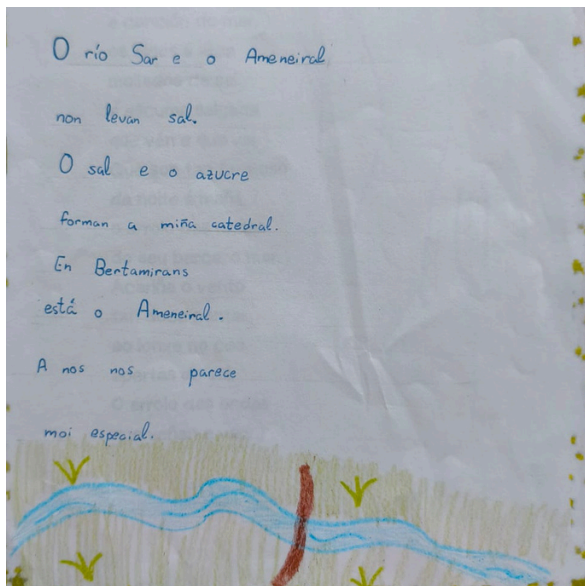 O río Sar e o Ameneiral
non levan sal.
O sal e o azucre
forman a miña catedral.
En Bertamirans
está o Ameneiral.
A nos nos parece
moi especial.